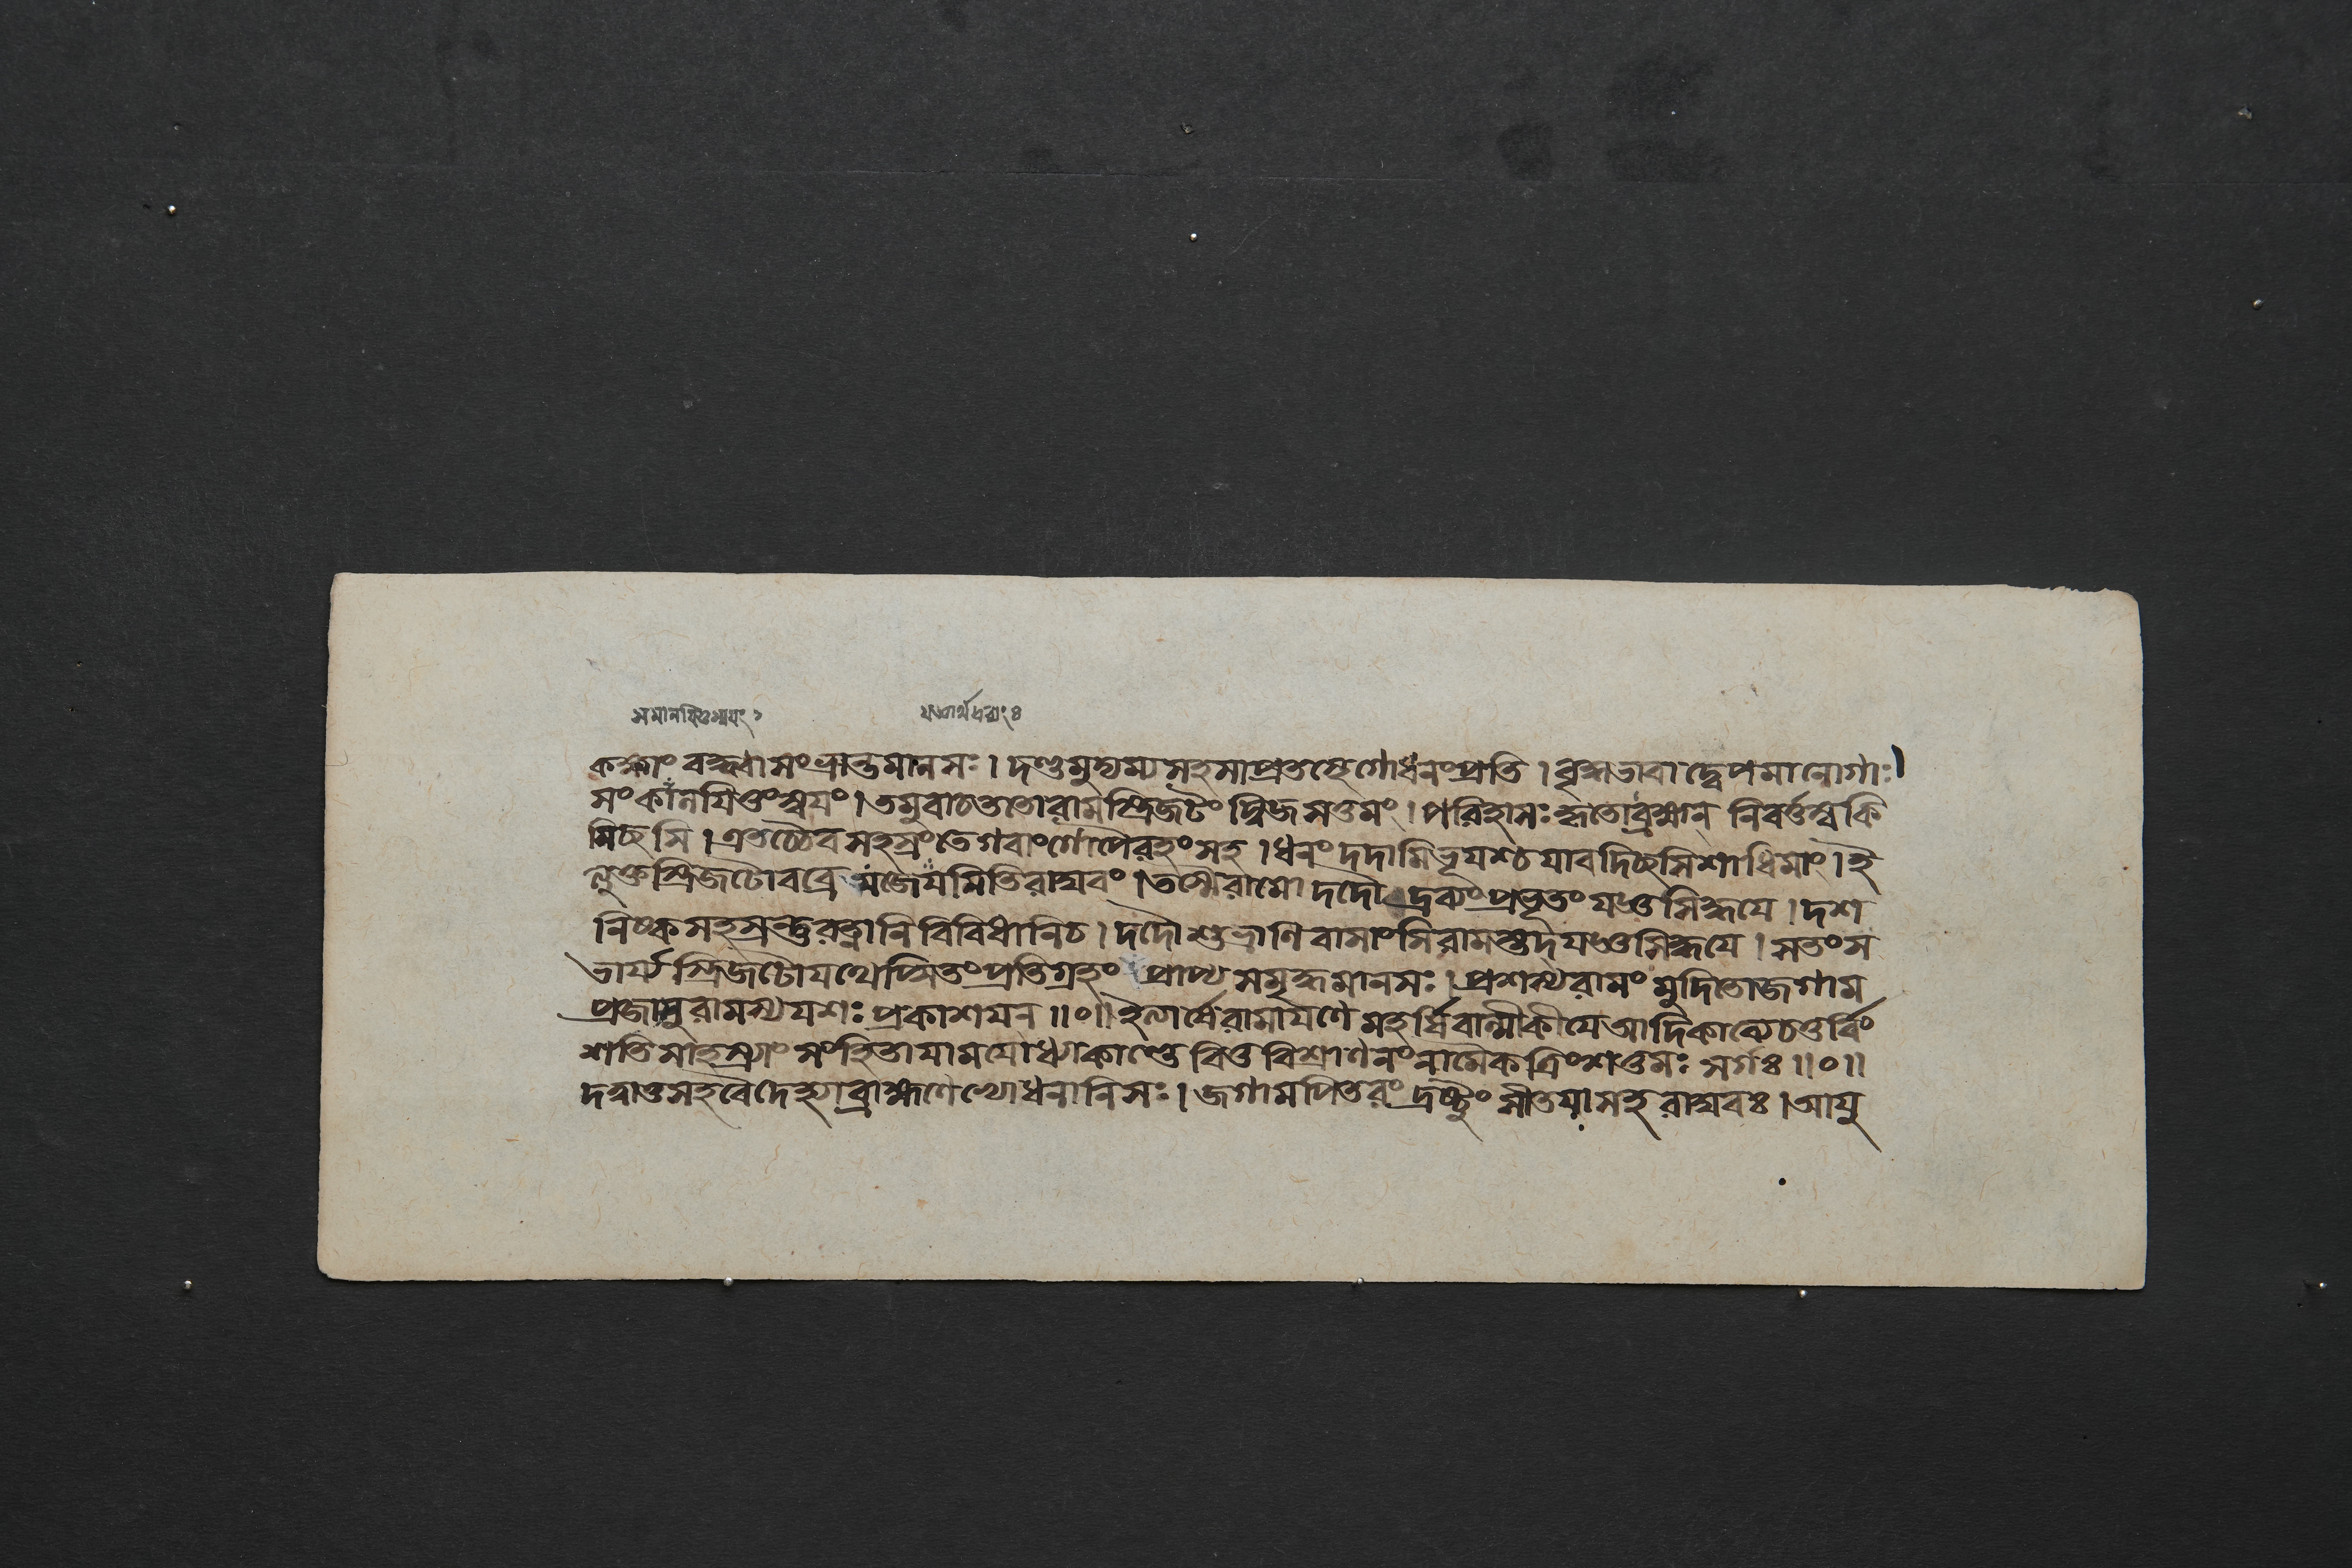 সমানযিতুমিত্যর্থঃ ২ যজ্ঞার্থদ্রব্যং ৪
কক্ষাং বদ্ধ্বা সংভ্রান্তমানসঃ। দণ্ডমুদ্যম্য সহসা প্রতস্থে গোধনং প্রতি । বৃদ্ধভাবাদ্বেপমানো গাঃ।
সংকালযিতুং স্বযং । তমুবাচ ততো রামস্ত্রিজটং দ্বিজসত্তমং । পরিহাসঃ কৃতো ব্রহ্মন্ নিবর্ত্তস্ব কি
মিচ্ছসি । এতচ্চৈব সহস্রং তে গবাং গোপৈরহং সহ । ধনং দদামি ভূযশ্চ যাবদিচ্ছসি শাধি মাং । ই
ত্যুক্তস্ত্রিজটো বব্রে যজেযমিতি রাঘবং । তস্মৈ রামো দদৌ দ্রব্যং প্রভূতং যজ্ঞসিদ্ধযে । দশ
নিষ্কসহস্রন্তু রত্নানি বিবিধানি চ । দদৌ শুভ্রাণি বাসাংসি রামস্তদ্যজ্ঞসিদ্ধযে । স তং স
ভার্য্যস্ত্রিজটো যথেপ্সিতং প্রতিগ্রহং প্রাপ্য সমৃদ্ধমানসঃ । প্রশস্য রামং মুদিতো জগাম
প্রজাসু রামস্য যশঃ প্রকাশযন্ ॥০॥ ইত্যার্ষে রামাযণে মহর্ষিবাল্মীকীযে আদিকাব্যে চতুর্বিং
শতিসাহস্র্যাং সংহিতাযামযোধ্যাকাণ্ডে বিত্তবিশ্রাণনং নামৈকত্রিংশত্তমঃ সর্গঃ ॥০॥
দত্ত্বা তু সহ বৈদেহ্যা ব্রাহ্মণেভ্যো ধনানি সঃ । জগাম পিতরং দ্রষ্টুং সীতযা সহ রাঘবঃ । আযু